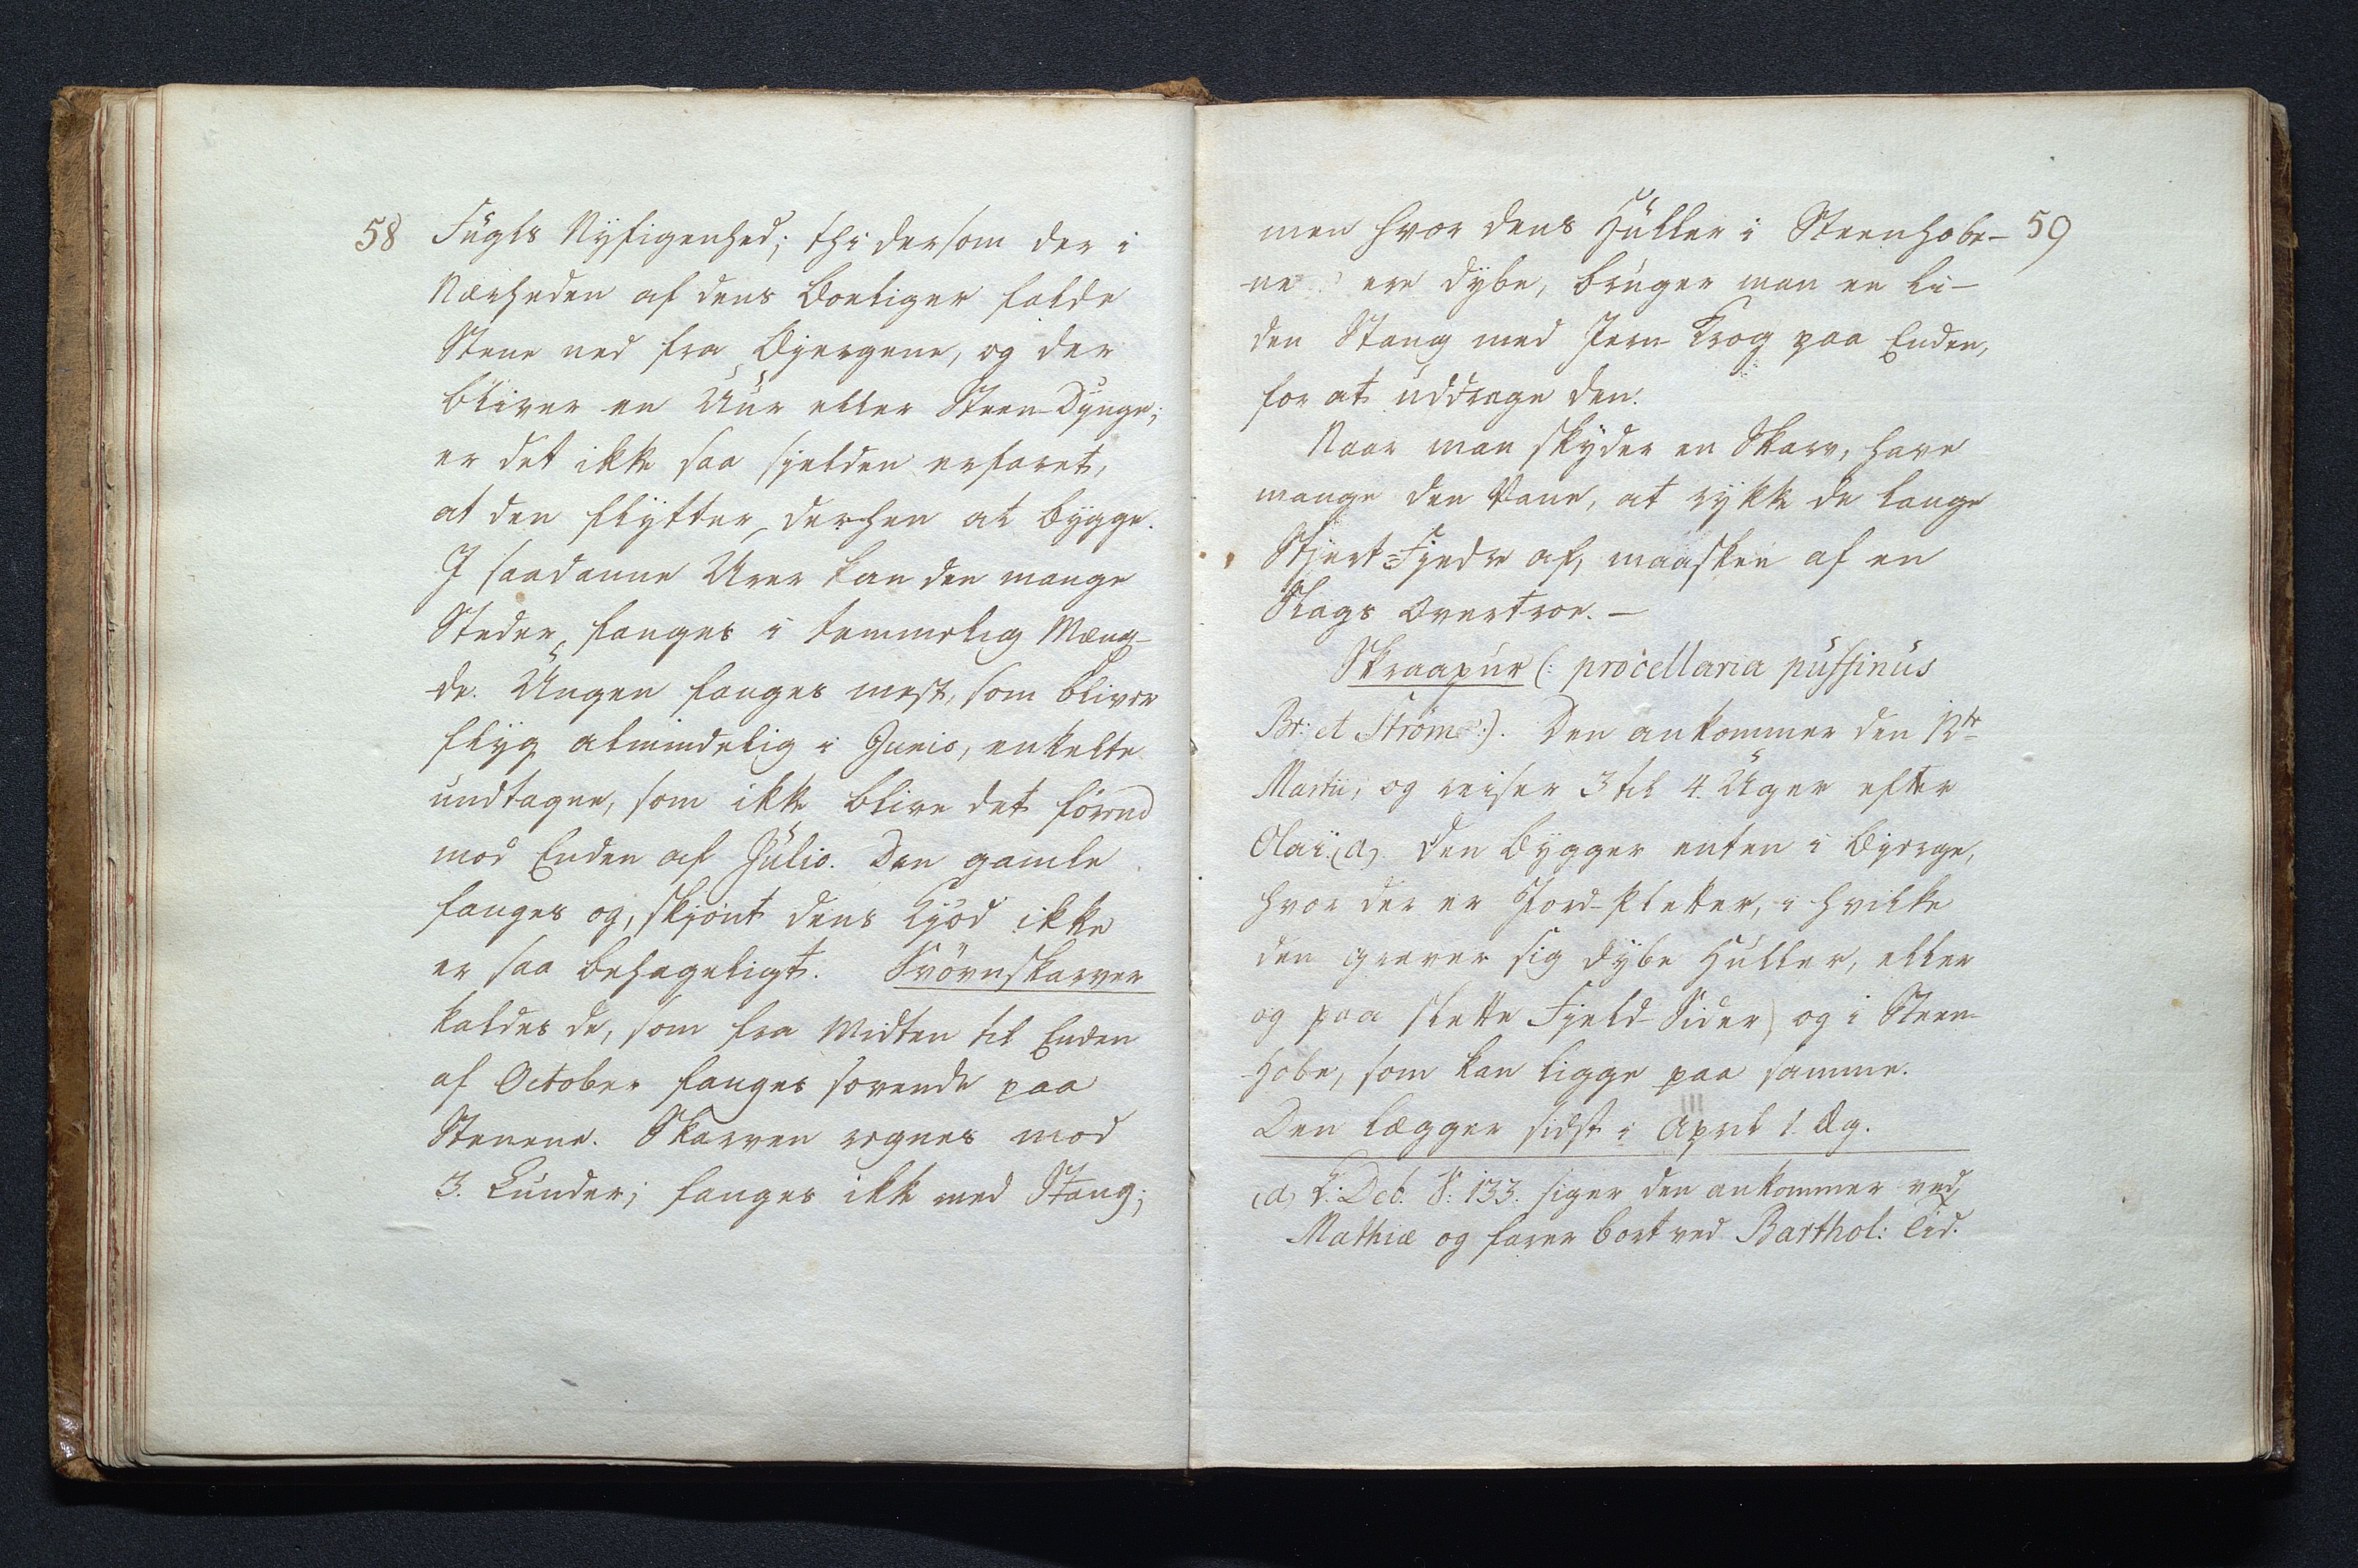 58
Fugls Nyfigenhed; thi dersom der i
Nærheden af dens Boeliger falde
Stene ned fra Bjergene, og der
bliver en Uur eller Steen-Dynge;
er det ikke saa sjelden erfaret,
at den flytter derhen at bygge.
I saadanne Urer kan den mange
Steder fanges i temmelig Mæng-
de. Ungen fanges mest, som bliver
flyg almindelig i Junio, enkelte
undtagne, som ikke blive det förend
mod Enden af Julio. Den gamle
fanges og, skjönt dens Kjöd ikke
er saa behageligt. Svövnskarver
kaldes de, som fra Midten til Enden
af October fanges sovende paa
Stenene. Skarven regnes mod
3. Lunder; fanges ikke med Stang;
59
men hvor dens Huller i Steenhobe-
ne ere dybe, bruger man en li-
den Stang med Jern-Krog paa Enden,
for at uddrage den.
Naar man skyder en Skarv, have
mange den Vane, at rykke de lange
Stjert-Fjedre af, maaskee af en
Slags Overtroe. —
Skraapur (: procellaria puffinus
Br: et Ström:). Den ankommer den 12te
Martii, og reiser 3 til 4. Uger efter
Olai. (a). Den bygger enten i Bjerge,
hvor der er Jord-Pletter, i hvilke
den graver sig dybe Huller, eller
og paa slette Fjeld-Sider) og i Steen-
Hobe, som kan ligge paa samme.
Den lægger sidst i April 1. Æg.
(a) L: Deb. S: 133. siger den ankommer ved
Mathiæ og farer bort ved Barthol: Tid.